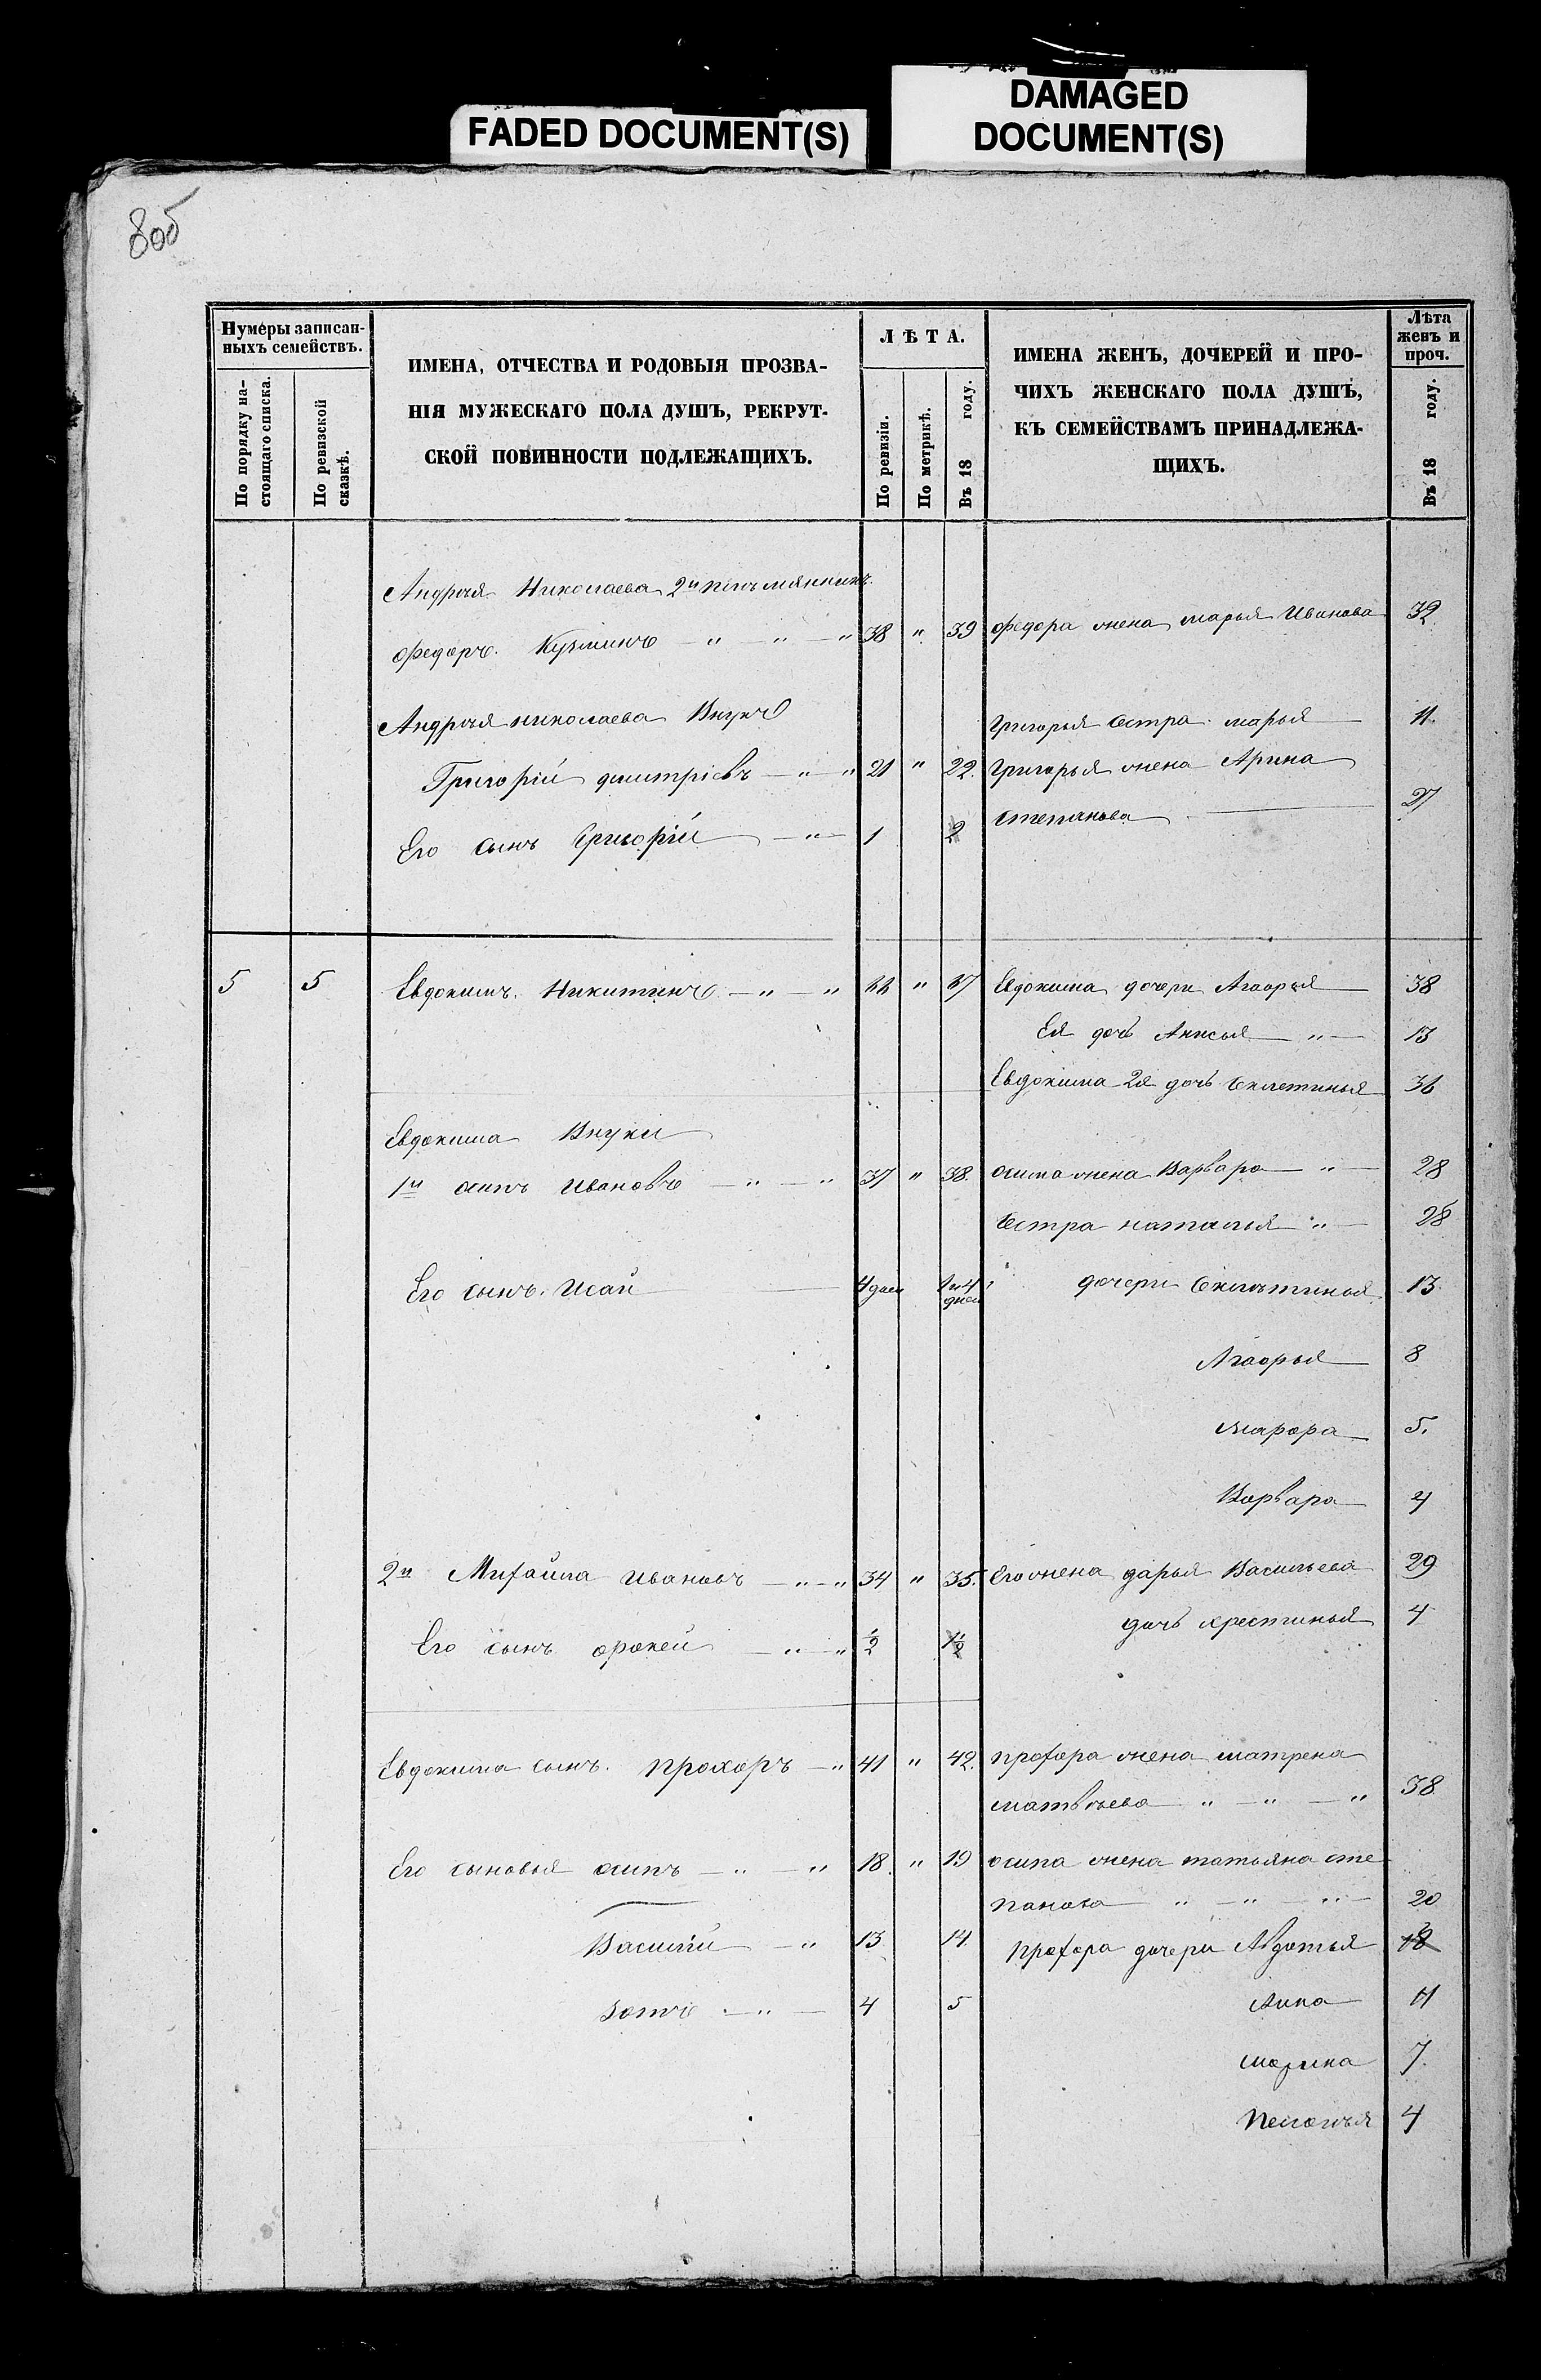 FADED DOCUMENT(S)
DAMAGED
DOCUMENT(S)
8об
Нумеры записан-
ныхъ семействъ.
По порядку на-
стоящаго списка.
По ревизской
сказкѣ.
ИМЕНА, ОТЧЕСТВА И РОДОВЫЯ ПРОЗВА-
НІЯ МУЖЕСКАГО ПОЛА ДУШЪ, РЕКРУТ-
СКОЙ ПОВИННОСТИ ПОДЛЕЖАЩИХЪ.
ЛѢТА.
По ревизіи.
По метрикѣ.
Въ 18 году.
ИМЕНА ЖЕНЪ, ДОЧЕРЕЙ И ПРО-
ЧИХЪ ЖЕНСКАГО ПОЛА ДУШЪ,
КЪ СЕМЕЙСТВАМЪ ПРИНАДЛЕЖА-
ЩИХЪ.
Лѣта
женъ и
проч.
Въ 18 году.
Андрѣя Николаева 2й племянникъ
Федоръ Кузминъ — " — " — " 38 " 39 Федора жена марья Иванова 32
Андрѣя николаева Внукъ
Григорья Сестра марья — 11.
Григорій дмитріевъ — " — " 21 " 22. Григорья жена Арина
степанова — 27
Его сынъ Григорій — " — 1 2
5 5 Евдокимъ Никитинъ — " — " 66 " 67 Евдокима дочери Агафья — 38
Ея дочь Анисья — " — 13
Евдокима 2я дочь Секлетинья 36
Евдокима Внуки
1й осипъ Ивановъ — " — " 37 " 38. осипа жена Варвара — " — 28
Сестра наталья " — 28
Его сынъ Исай — 4 дней 1 и 4 дней дочери Секлѣтинья 13
Агафья — 8
марфа — 5.
Варвара — 4
2й Михайла Ивановъ — " — " 34 " 35. Его жена дарья Васильева 29
дочь хрестинья 4
Его сынъ фокей — " — " ½ 1½
Евдокима сынъ прохоръ — " 41 " 42. прохора жена матрена
матвѣева " — " — " 38
Его сыновья осипъ — " — " 18. " 19 осипа жена татьяна сте
панова — " — " — " — 20
Василій — " 13 14. прохора дочери Авдотья
Зотъ — " — 4 5 Анна — 11
марина 7.
пелагѣя 4